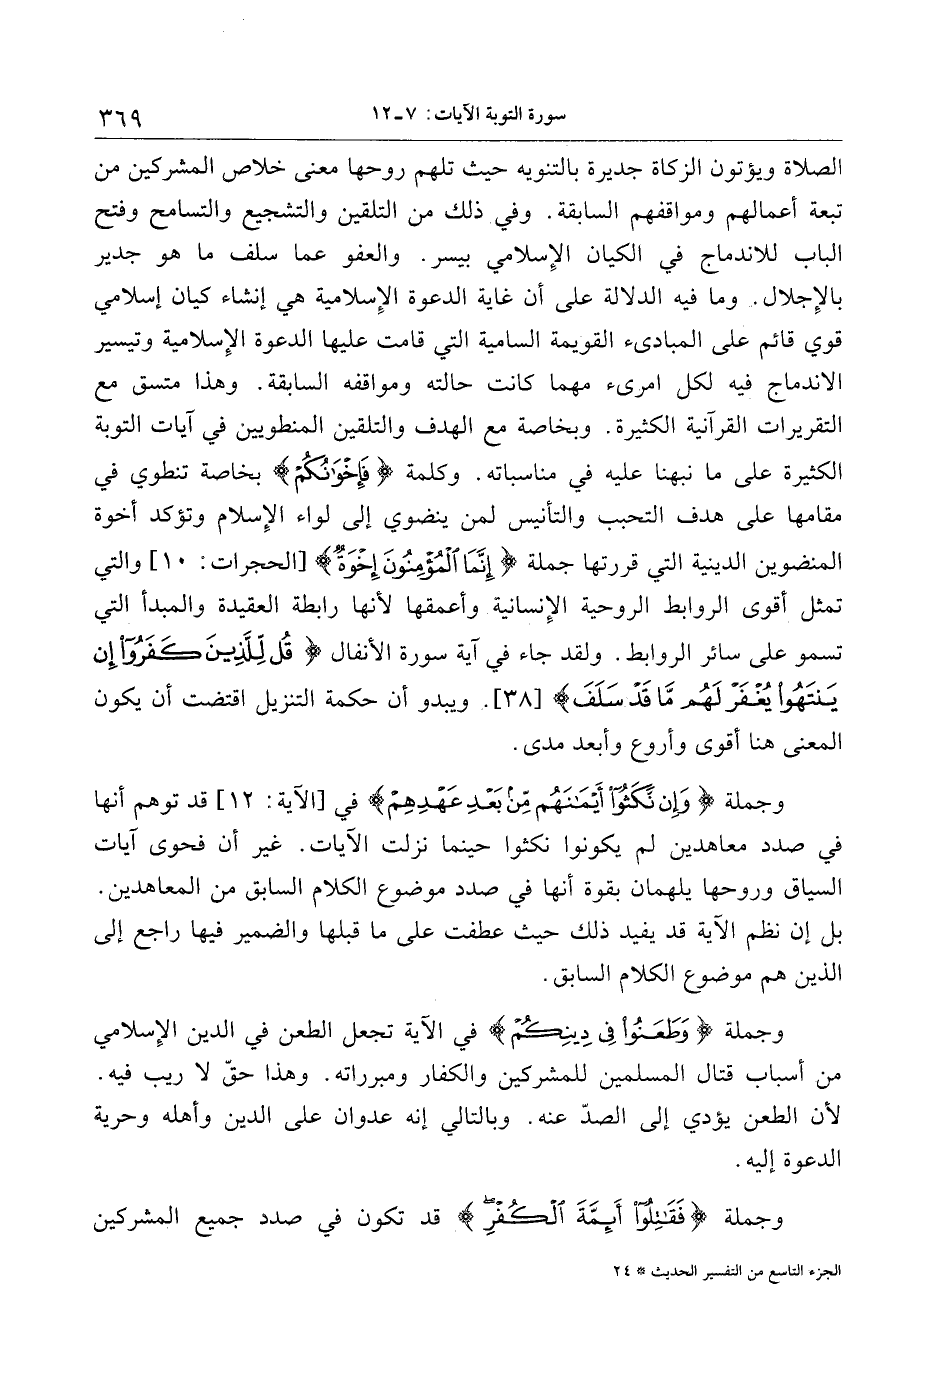 سورة التوبة الآيات: ٧ـ١٢
٣٦٩
الصلاة ويؤتون الزكاة جديرة بالتنويه حيث تلهم روحها معنى خلاص المشركين من
تبعة أعمالهم ومواقفهم السابقة. وفي ذلك من التلقين والتشجيع والتسامح وفتح
الباب للاندماج في الكيان الإسلامي بيسر. والعفو عما سلف ما هو جدير
بالإجلال. وما فيه الدلالة على أن غاية الدعوة الإسلامية هي إنشاء كيان إسلامي
قوي قائم على المبادىء القويمة السامية التي قامت عليها الدعوة الإسلامية وتيسير
الاندماج فيه لكل امرىء مهما كانت حالته ومواقفه السابقة. وهذا متسق مع
التقريرات القرآنية الكثيرة. وبخاصة مع الهدف والتلقين المنطويين في آيات التوبة
الكثيرة على ما نبهنا عليه في مناسباته. وكلمة ﴿فَإِخْوَٰنُكُمْ﴾ بخاصة تنطوي في
مقامها على هدف التحبب والتأنيس لمن ينضوي إلى لواء الإسلام وتؤكد أخوة
المنضوين الدينية التي قررتها جملة ﴿إِنَّمَا ٱلْمُؤْمِنُونَ إِخْوَةٌ﴾ [الحجرات: ١٠] والتي
تمثل أقوى الروابط الروحية الإنسانية وأعمقها لأنها رابطة العقيدة والمبدأ التي
تسمو على سائر الروابط. ولقد جاء في آية سورة الأنفال ﴿قُل لِّلَّذِينَ كَفَرُوٓا۟ إِن
يَنتَهُوا۟ يُغْفَرْ لَهُم مَّا قَدْ سَلَفَ﴾ [٣٨]. ويبدو أن حكمة التنزيل اقتضت أن يكون
المعنى هنا أقوى وأروع وأبعد مدى.
وجملة ﴿وَإِن نَّكَثُوٓا۟ أَيْمَٰنَهُم مِّنۢ بَعْدِ عَهْدِهِمْ﴾ في [الآية: ١٢] قد توهم أنها
في صدد معاهدين لم يكونوا نكثوا حينما نزلت الآيات. غير أن فحوى آيات
السياق وروحها يلهمان بقوة أنها في صدد موضوع الكلام السابق من المعاهدين.
بل إن نظم الآية قد يفيد ذلك حيث عطفت على ما قبلها والضمير فيها راجع إلى
الذين هم موضوع الكلام السابق.
وجملة ﴿وَطَعَنُوا۟ فِى دِينِكُمْ﴾ في الآية تجعل الطعن في الدين الإسلامي
من أسباب قتال المسلمين للمشركين والكفار ومبرراته. وهذا حقّ لا ريب فيه.
لأن الطعن يؤدي إلى الصدّ عنه. وبالتالي إنه عدوان على الدين وأهله وحرية
الدعوة إليه.
وجملة ﴿فَقَٰتِلُوٓا۟ أَئِمَّةَ ٱلْكُفْرِ ۙ﴾ قد تكون في صدد جميع المشركين
الجزء التاسع من التفسير الحديث * ٢٤